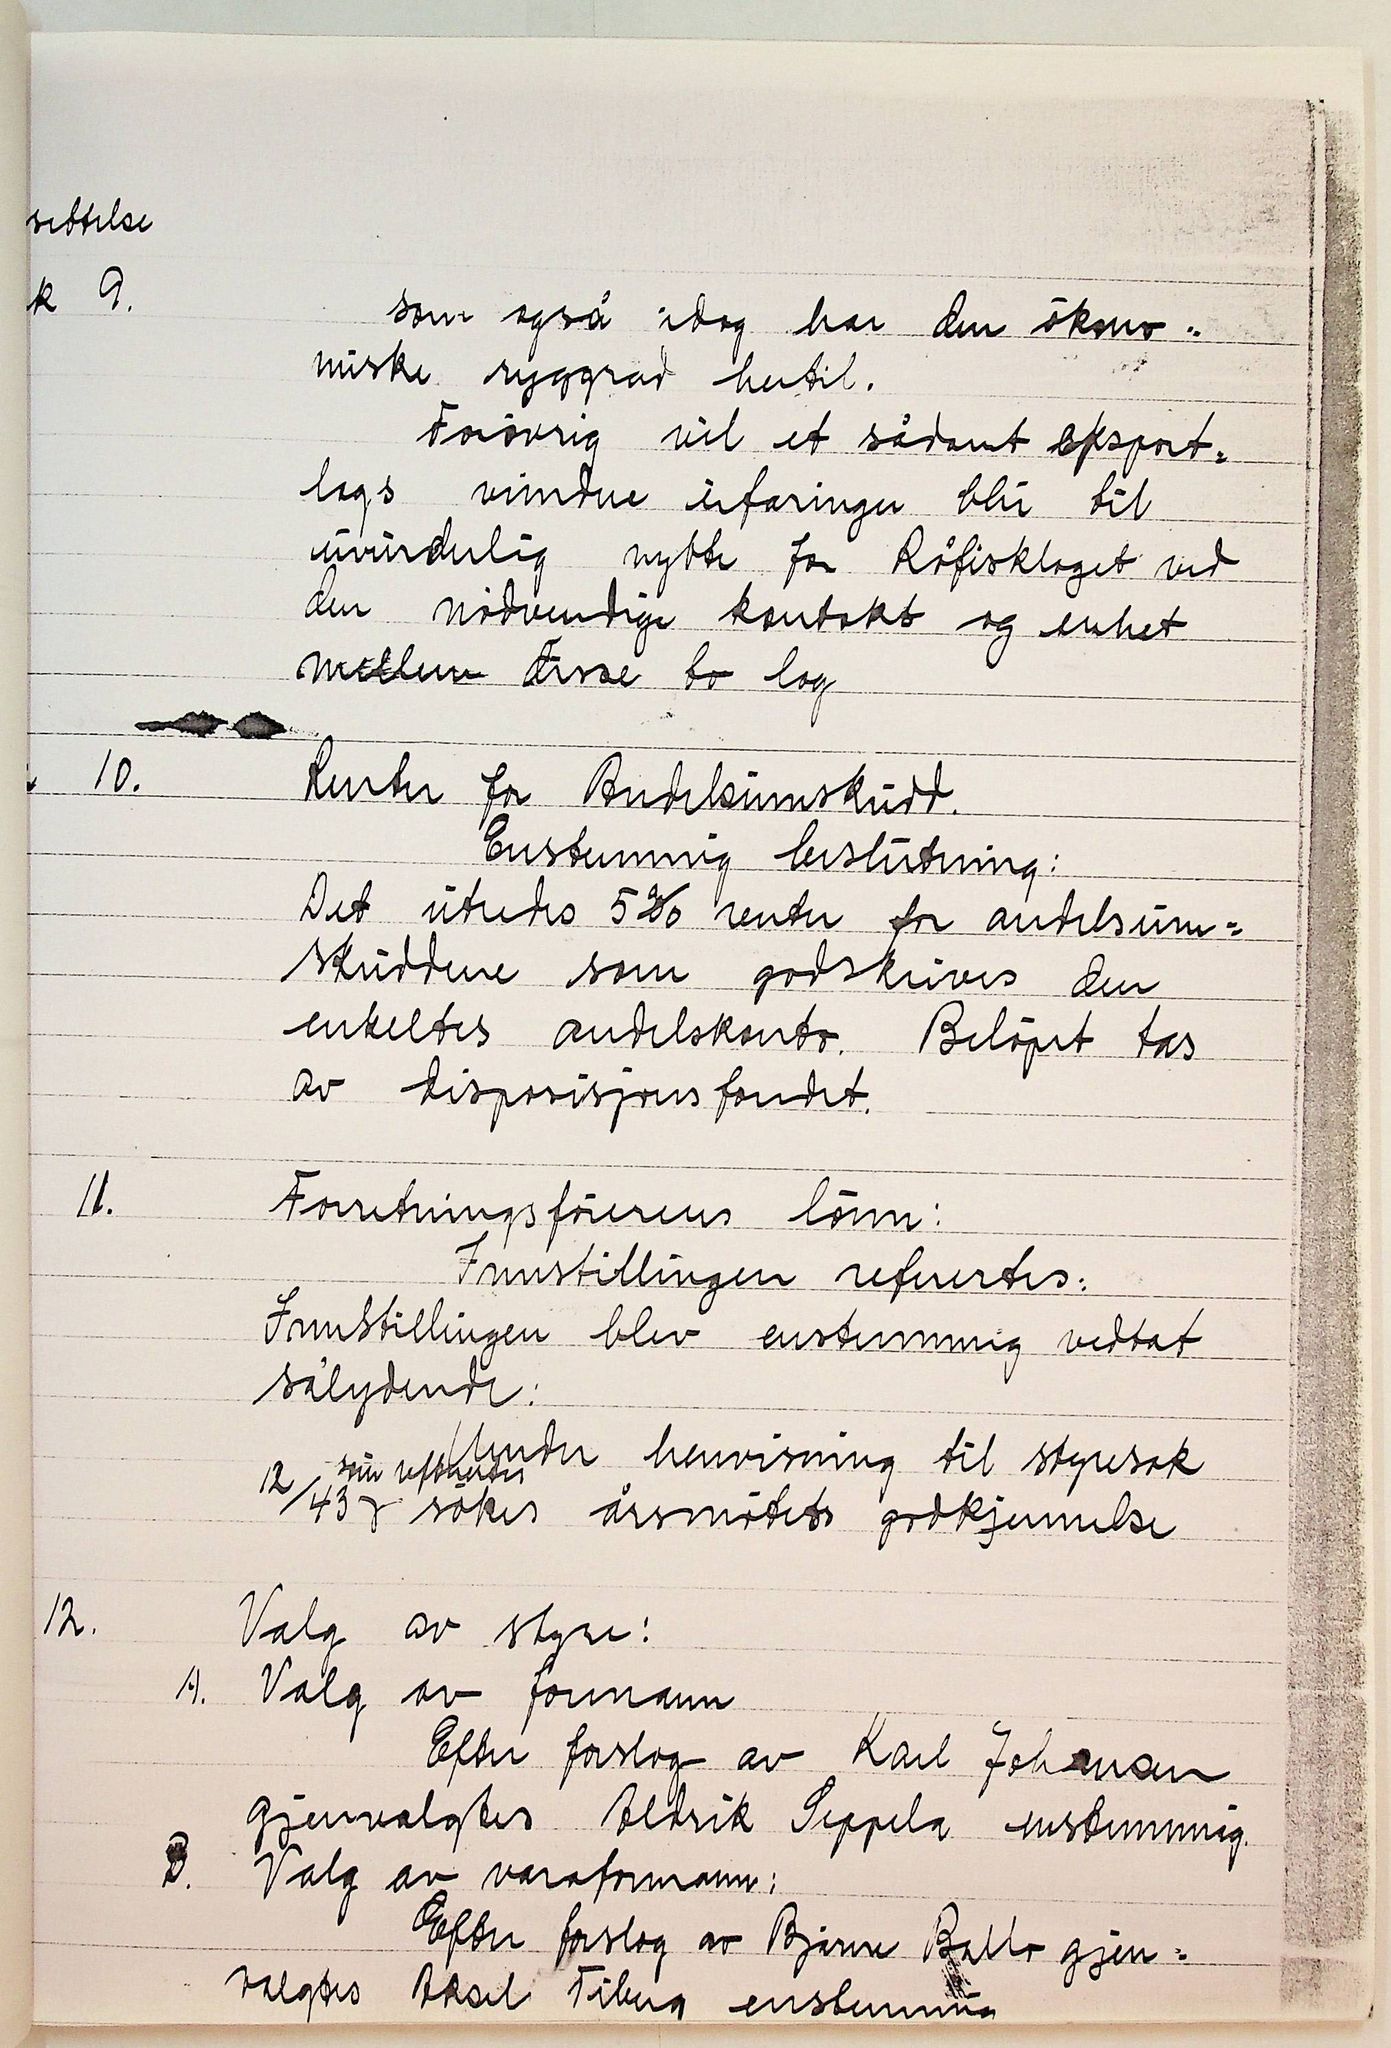 settelse
k 9. som også idag har den økono=
miske ryggrad hertil.
Forøvrig vil et sådant eksport=
lags vundne erfaringer bli til
uvurderlig nytte for Råfisklaget ved
den nødvendige kontakt og enhet
mellem disse to lag
10. Renter for Andelsinnskudd.
Enstemmig beslutning:
Det utredes 5% renter for andelsinn=
skuddene som godskrives den
enkeltes andelskonto. Beløpet tas
av disposisjonsfondet.
11. Forretningsførerens lønn:
Innstillingen refertes:
Innstillingen blev enstemmig vedtat
sålydende:
Under henvisning til styresak
som
12/43 søkes årsmøtets godkjennelse
12. Valg av styre:
A. Valg av formann
Efter forslag av Karl Johansen
gjenvalgtes Aldrik Seppela enstemmig.
B. Valg av varaformann:
Efter forslag av Bjarne Ballo gjen=
valgtes Aksel Fiberg enstemmig